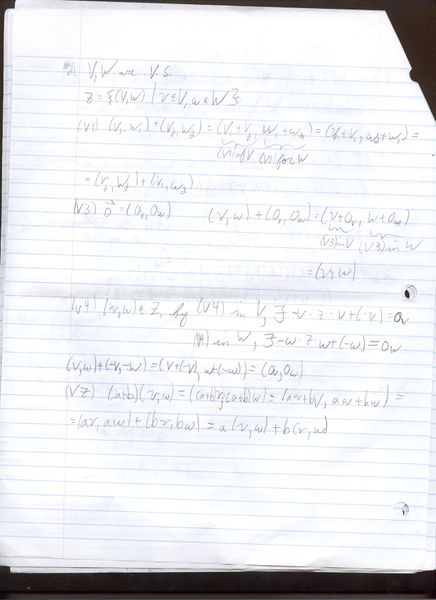 V, W are V.S.
Z = {(V, W) | v ∈ V, w ∈ W}
(V1) (v₁, w₁) + (v₂, w₂) = (v₁ + v₂, w₁ + w₂) = (v₂ + v₁, w₂ + w₁) =
(V1) of V (V1) for W
= (v₂, w₂) + (v₁, w₁)
(V3) 0⃗ = (0ᵥ, 0w) (v, w) + (0ᵥ, 0w) = (v + 0ᵥ, w + 0w)
(V3) in V (V3) in W
= (v, w)
(V4) (v, w) ∈ Z, by (V4) in V, ∃ -v · z · v + (-v) = 0ᵥ
(V4) in W, ∃ -w · z · w + (-w) = 0w
(v, w) + (-v, -w) = (v + (-v), w + (-w)) = (0ᵥ, 0w)
(VZ) (a+b)(v, w) = ((a+b)v, (a+b)w) = (av + bv, aw + bw) =
= (av, aw) + (bv, bw) = a(v, w) + b(v, w)